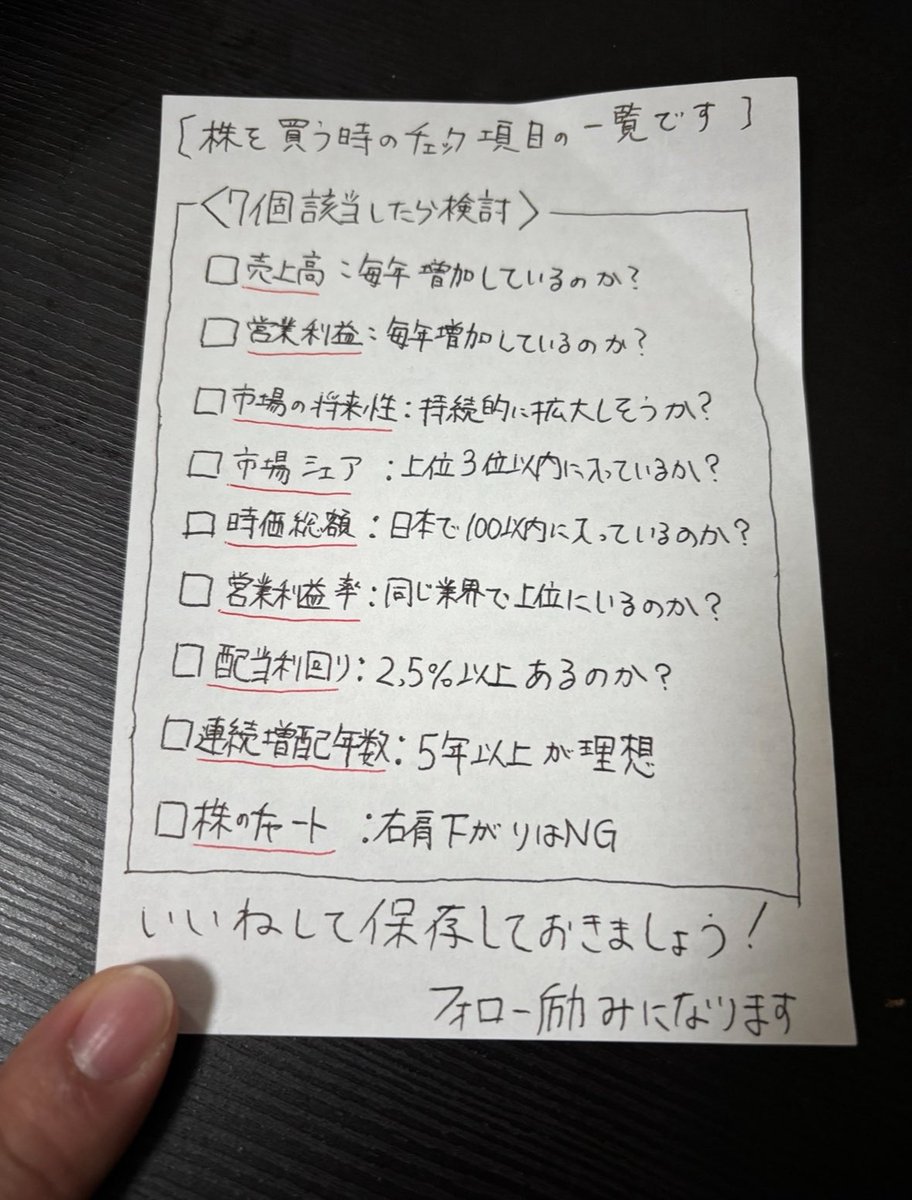 [株を買う時のチェック項目の一覧です]
<7個該当したら検討>
□売上高：毎年増加しているのか?
□営業利益：毎年増加しているのか?
□市場の将来性：持続的に拡大しそうか?
□市場シェア：上位3位以内に入っているか?
□時価総額：日本で100以内に入っているのか?
□営業利益率：同じ業界で上位にいるのか?
□配当利回り：2.5%以上あるのか?
□連続増配年数：5年以上が理想
□株のチャート：右肩下がりはNG
いいねして保存しておきましょう!
フォロー励みになります